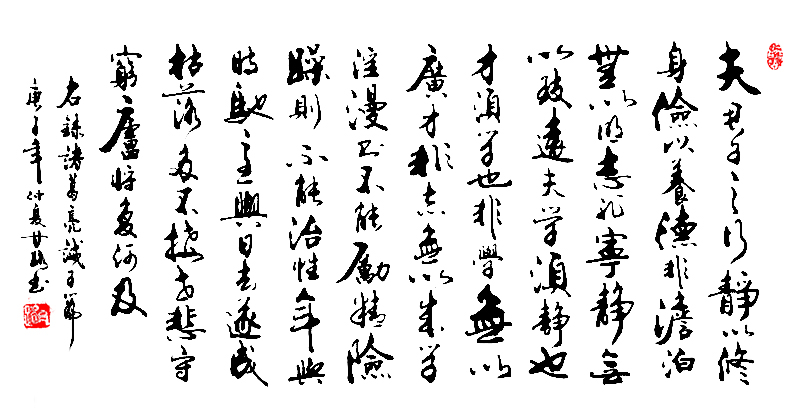 夫君子之行靜以修
身儉以養德非澹泊
無以明志非寧靜無
以致遠夫學須靜也
才須學也非學無以
廣才非志無以成學
淫漫則不能勵精險
躁則不能治性年與
時馳意與日去遂成
枯落多不接世悲守
窮廬將復何及
右錄諸葛亮誡子篇
庚子年仲夏甘書